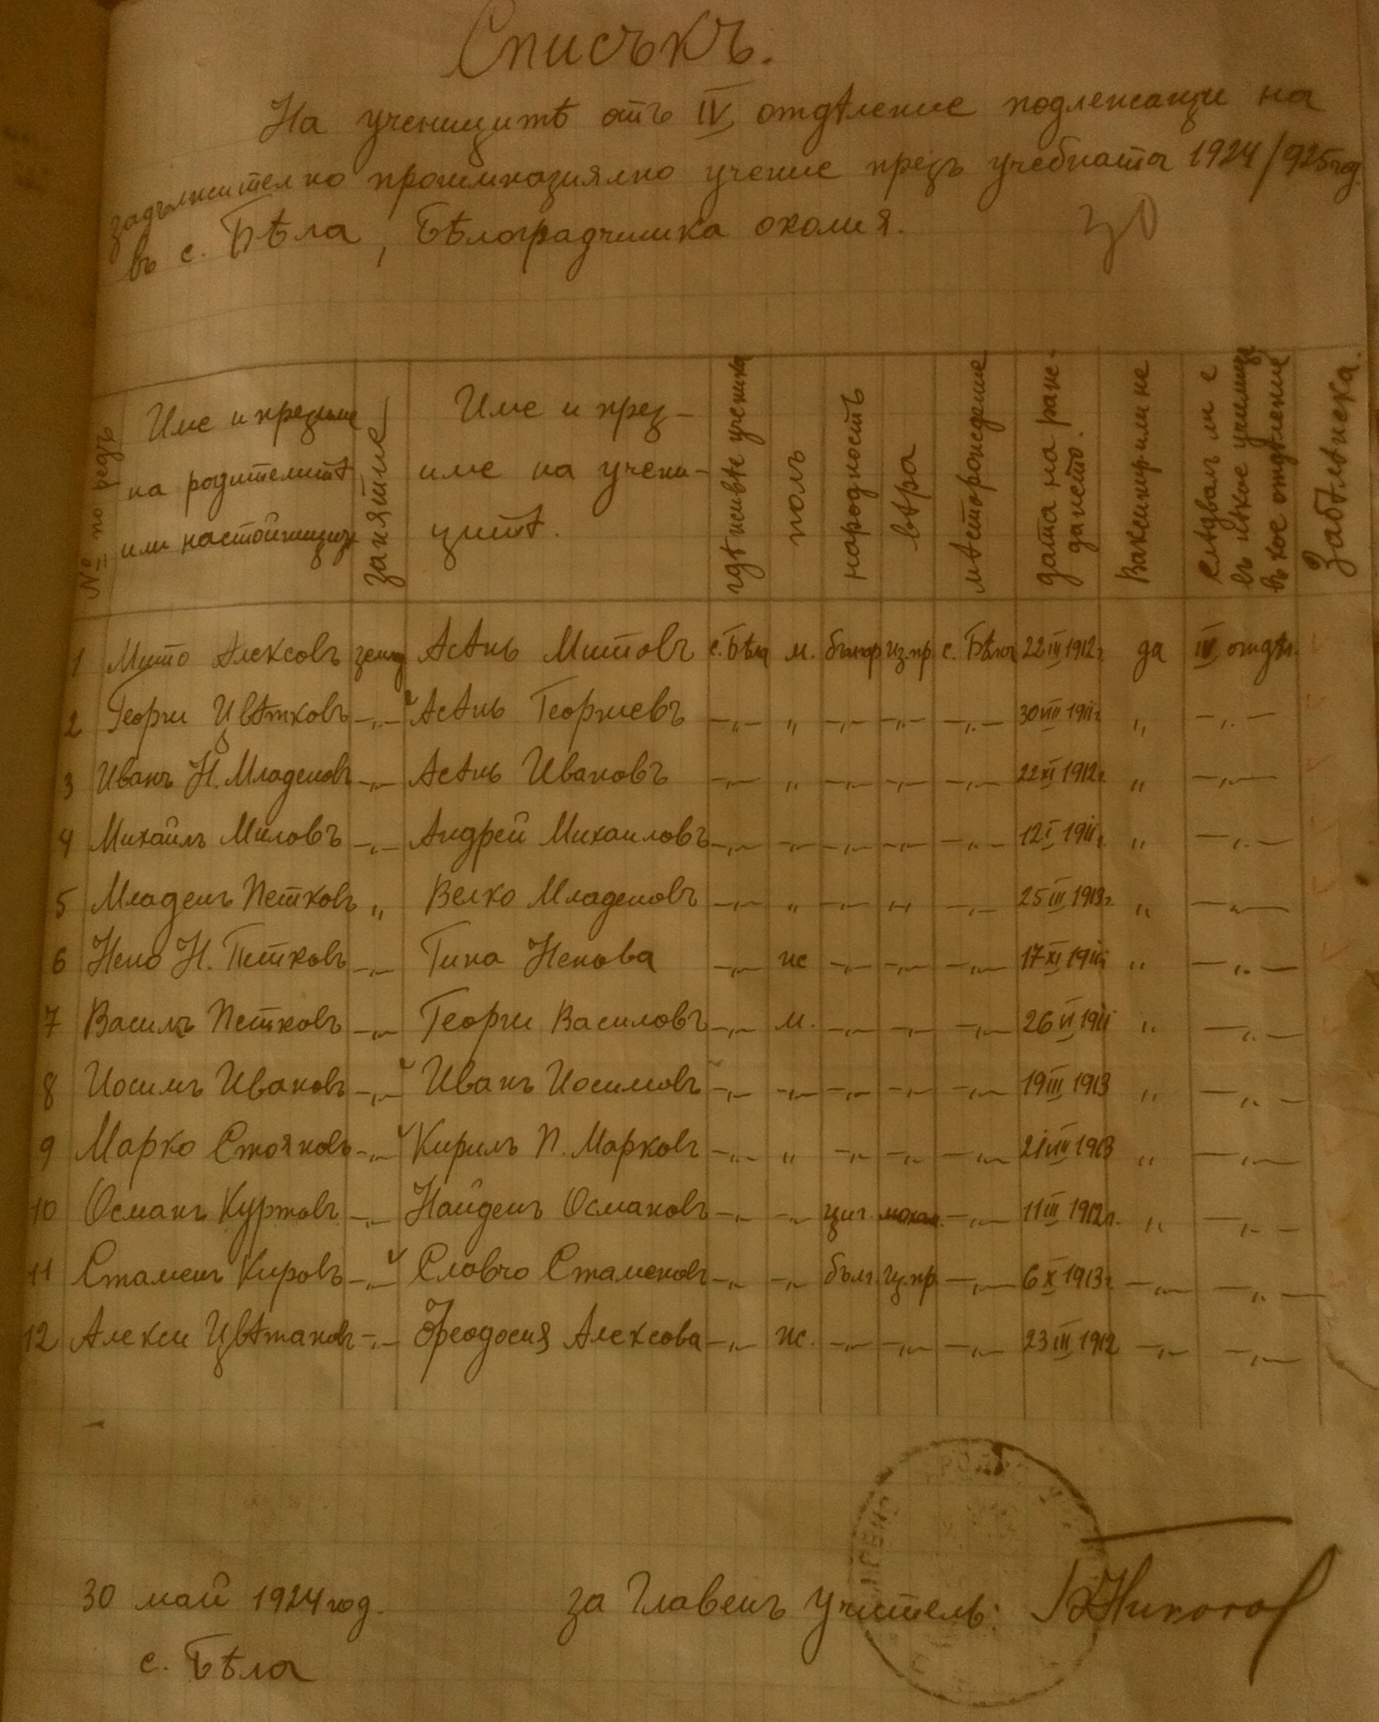 Списъкъ.
На ученицитѣ отъ IV отдѣление подлежащи на
задължително прогимназиялно учение презъ учебната 1924/925 год.
въ с. Бѣла, Бѣлоградчишка околия.
30
№ по редъ Име и презиме на родителитѣ или настойницитѣ занятие Име и през-име на учени-цитѣ. гдѣ живѣе ученика полъ народность вѣра мѣсторождение дата на ражданието. Ваксинир. или не следвалъ ли е въ нѣкое училище въ кое отдѣление Забѣлѣжка.
1 Мито Алексовъ земед Асѣнъ Митовъ с. Бѣла м. бългор из.пр с. Бѣла 22 III 1912г. да IV отдѣл.
2 Георги Цвѣтковъ -„- Асѣнъ Георгиевъ -„- „ -„- -„- -„- 30 VIII 1911г. „ -„-
3 Иванъ Н. Младеновъ -„- Асѣнъ Ивановъ -„- „ -„- -„- -„- 22 XI 1912г. „ -„-
4 Михаилъ Миловъ -„- Андрей Михаиловъ -„- -„- -„- -„- -„- 12 I 1911г. „ -„-
5 Младенъ Петковъ „ Велко Младеновъ -„- „ -„- -„- -„- 25 III 1913г. „ -„-
6 Нено Н. Петковъ -„- Гина Ненова -„- ж -„- -„- -„- 17 XI 1911г. „ -„-
7 Василъ Петковъ -„- Георги Василовъ -„- м. -„- -„- -„- 26 VI 1911 „ -„-
8 Иосимъ Ивановъ -„- Иванъ Иосимовъ -„- -„- -„- -„- -„- 19 III 1913 „ -„-
9 Марко Стояновъ -„- Кирилъ П. Марковъ -„- „ -„- -„- -„- 21 VII 1913 „ -„-
10 Османъ Куртовъ -„- Найденъ Османовъ -„- -„- циг. мохам. -„- 11 III 1912г. „ -„-
11 Стаменъ Кировъ -„- Славчо Стаменовъ -„- -„- бълг. из.пр -„- 6 X 1913г. -„- -„-
12 Алекси Цвѣтановъ -„- Феодосия Алексова -„- ж. -„- -„- -„- 23 III 1912 -„- -„-
30 май 1924 год. за Главенъ учитель:
с. Бѣла